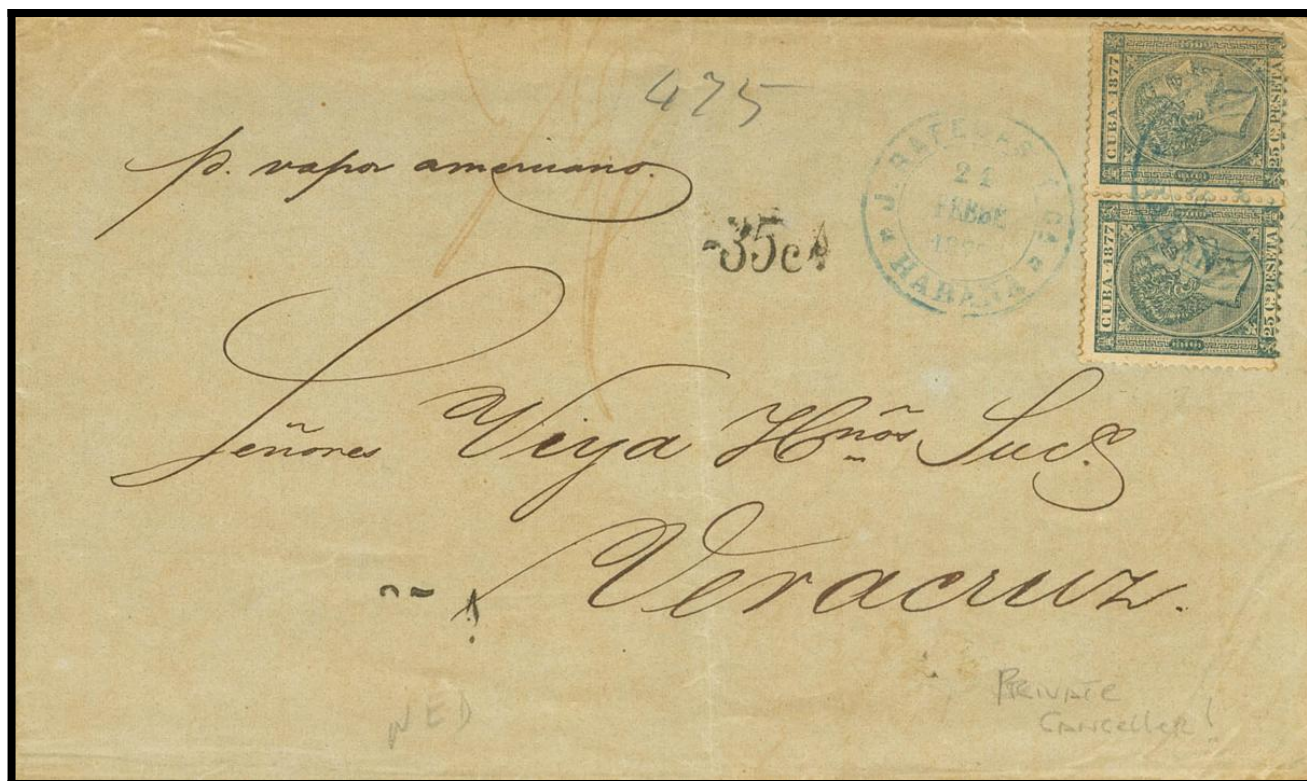 475
p. vapor americano.
35c
J. RAFECAS Y Ca
HABANA
CUBA · 1877
25 Cs PESETA
CUBA · 1877
25 Cs PESETA
Señores Viya Hnõs Sucs
Veracruz.
NED
PRIVATE
CANCELLER!